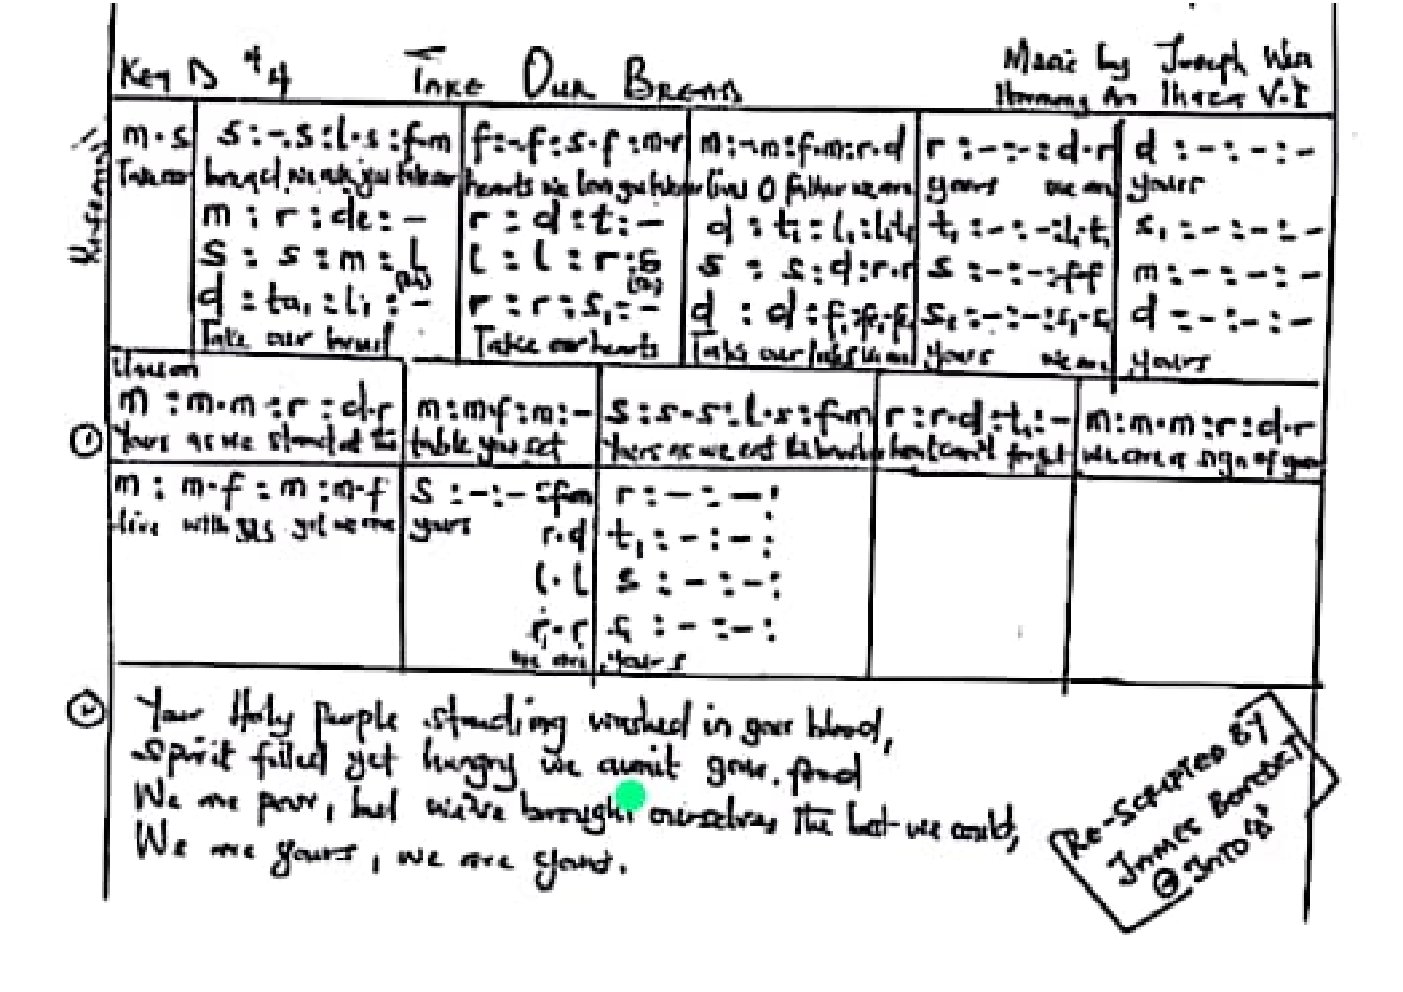 Key D 4/4 Take Our Bread Music by Joseph Wise
Harmony
(Refrain)
m.s | s:-.s:l.s:f.m | f:-.f:s.f:m.r | m:-.m:f.m:r.d | r:-:-:d.r | d:-:-:-
Take our bread, we ask you take our hearts we love you take our lives O father we are yours we are yours
m:r:de:- | r:d:t:- | d:t₁:l₁:l₁.l₁ | t₁:-:-:l₁.t₁ | s₁:-:-:-
s:s:m:l | l:l:r:s | s:s:d:r.r | s:-:-:f.f | m:-:-:-
d:ta₁:l₁:- | r:r:s₁:- | d:d:f₁:f₁.f₁ | s₁:-:-:s₁.s₁ | d:-:-:-
Take our bread Take our hearts Take our lives we are yours we are yours
Unison
① m:m.m:r:d.r | m:m.f:m:- | s:s.s:l.s:f.m | r:r.d:t₁:- | m:m.m:r:d.r
Yours as we stand at the table you set Yours as we eat the bread our hearts can't forget we are a sign of your
m:m.f:m:m.f | s:-:-:f.m | r:-:-:
life with us yet we are yours
r.d | t₁:-:-:
l.l | s:-:-:
r.r | s₁:-:-:
we are yours
② Your Holy people standing washed in your blood,
Spirit filled yet hungry we await your food
We are poor, but we've brought ourselves the best we could,
We are yours, we are yours.
Re-Scripted By
James Benedict
@